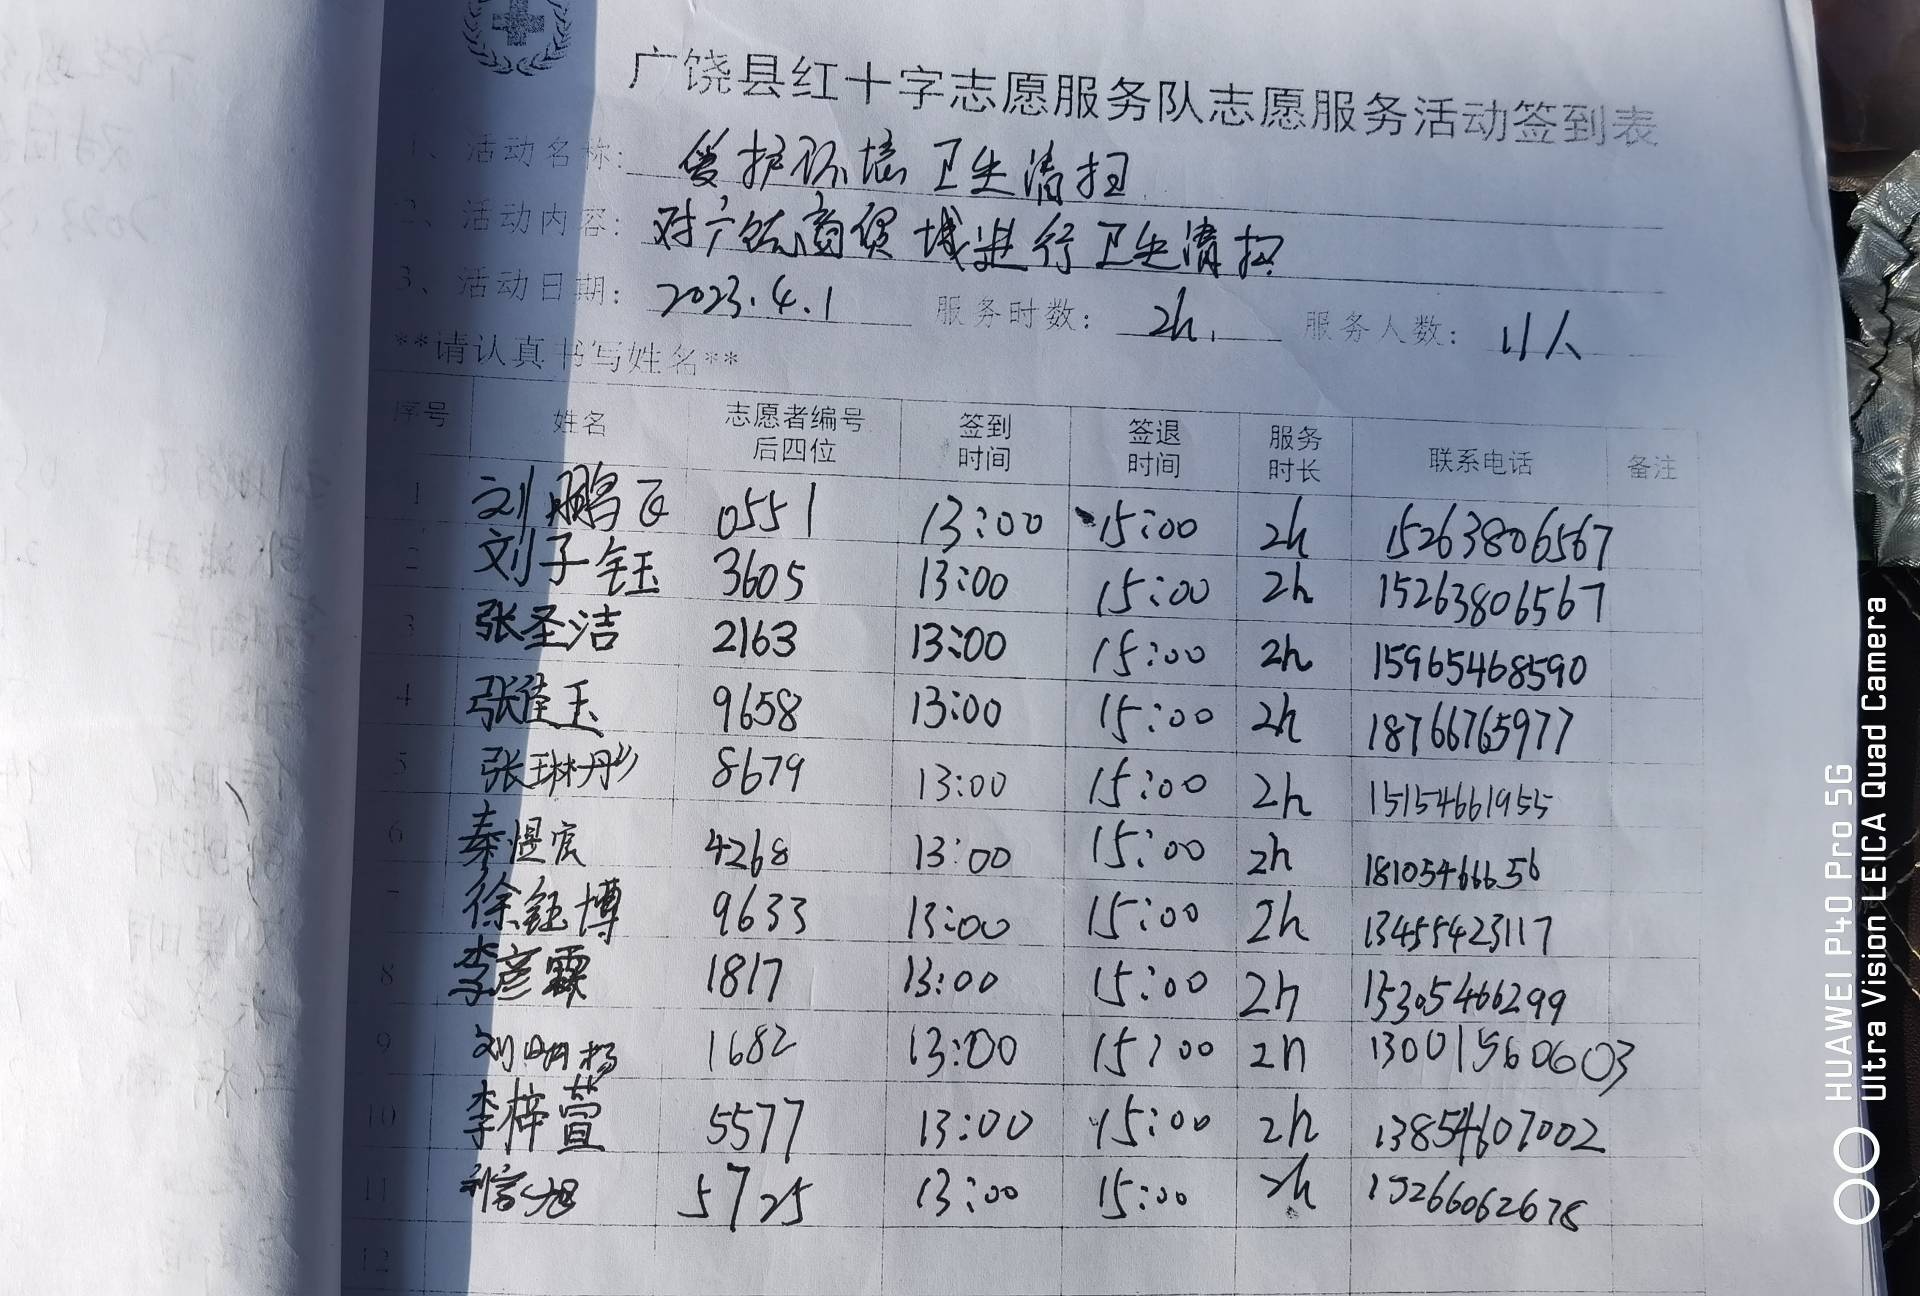 广饶县红十字志愿服务队志愿服务活动签到表
1、活动名称: 爱护环境 卫生清扫
2、活动内容: 对广饶商贸城进行卫生清扫
3、活动日期: 2023.4.1 服务时数: 2h. 服务人数: 11人
**请认真书写姓名**
序号 姓名 志愿者编号后四位 签到时间 签退时间 服务时长 联系电话 备注
1 刘鹏飞 0551 13:00 15:00 2h 15263806567
2 刘子钰 3605 13:00 15:00 2h 15263806567
3 张圣洁 2163 13:00 15:00 2h 15965468590
4 张佳玉 9658 13:00 15:00 2h 18766765977
5 张琳丹 8679 13:00 15:00 2h 15154661955
6 秦煜宸 4268 13:00 15:00 2h 18105466656
7 徐钰博 9633 13:00 15:00 2h 13455423117
8 李彦霖 1817 13:00 15:00 2h 15305466299
9 刘明杨 1682 13:00 15:00 2h 13001560603
10 李梓萱 5577 13:00 15:00 2h 13854607002
11 5725 13:00 15:00 2h 15266062678
12
HUAWEI P40 Pro 5G
Ultra Vision LEICA Quad Camera